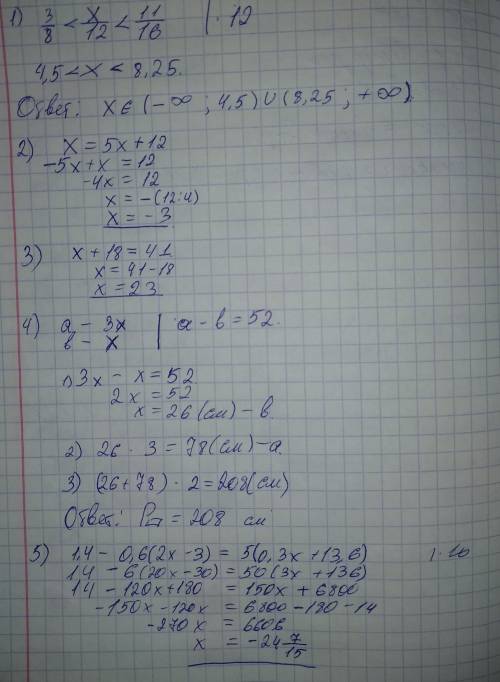 1) 3/8 < x/12 < 11/16 | · 12
4,5 < x < 8,25.
Ответ: x ∈ (-∞ ; 4,5) ∪ (8,25 ; +∞).
2) x = 5x + 12
-5x + x = 12
-4x = 12
x = -(12:4)
x = -3
3) x + 18 = 41
x = 41 - 18
x = 23
4) a - 3x | a - b = 52.
b - x
1) 3x - x = 52
2x = 52
x = 26 (см) - b
2) 26 · 3 = 78 (см) - a
3) (26 + 78) · 2 = 208 (см)
Ответ: P▭ = 208 см
5) 1,4 - 0,6(2x - 3) = 5(0,3x + 13,6) | · 10
14 - 6(20x - 30) = 50(3x + 136)
14 - 120x + 180 = 150x + 6800
-150x - 120x = 6800 - 180 - 14
-270x = 6606
x = -24 7/15